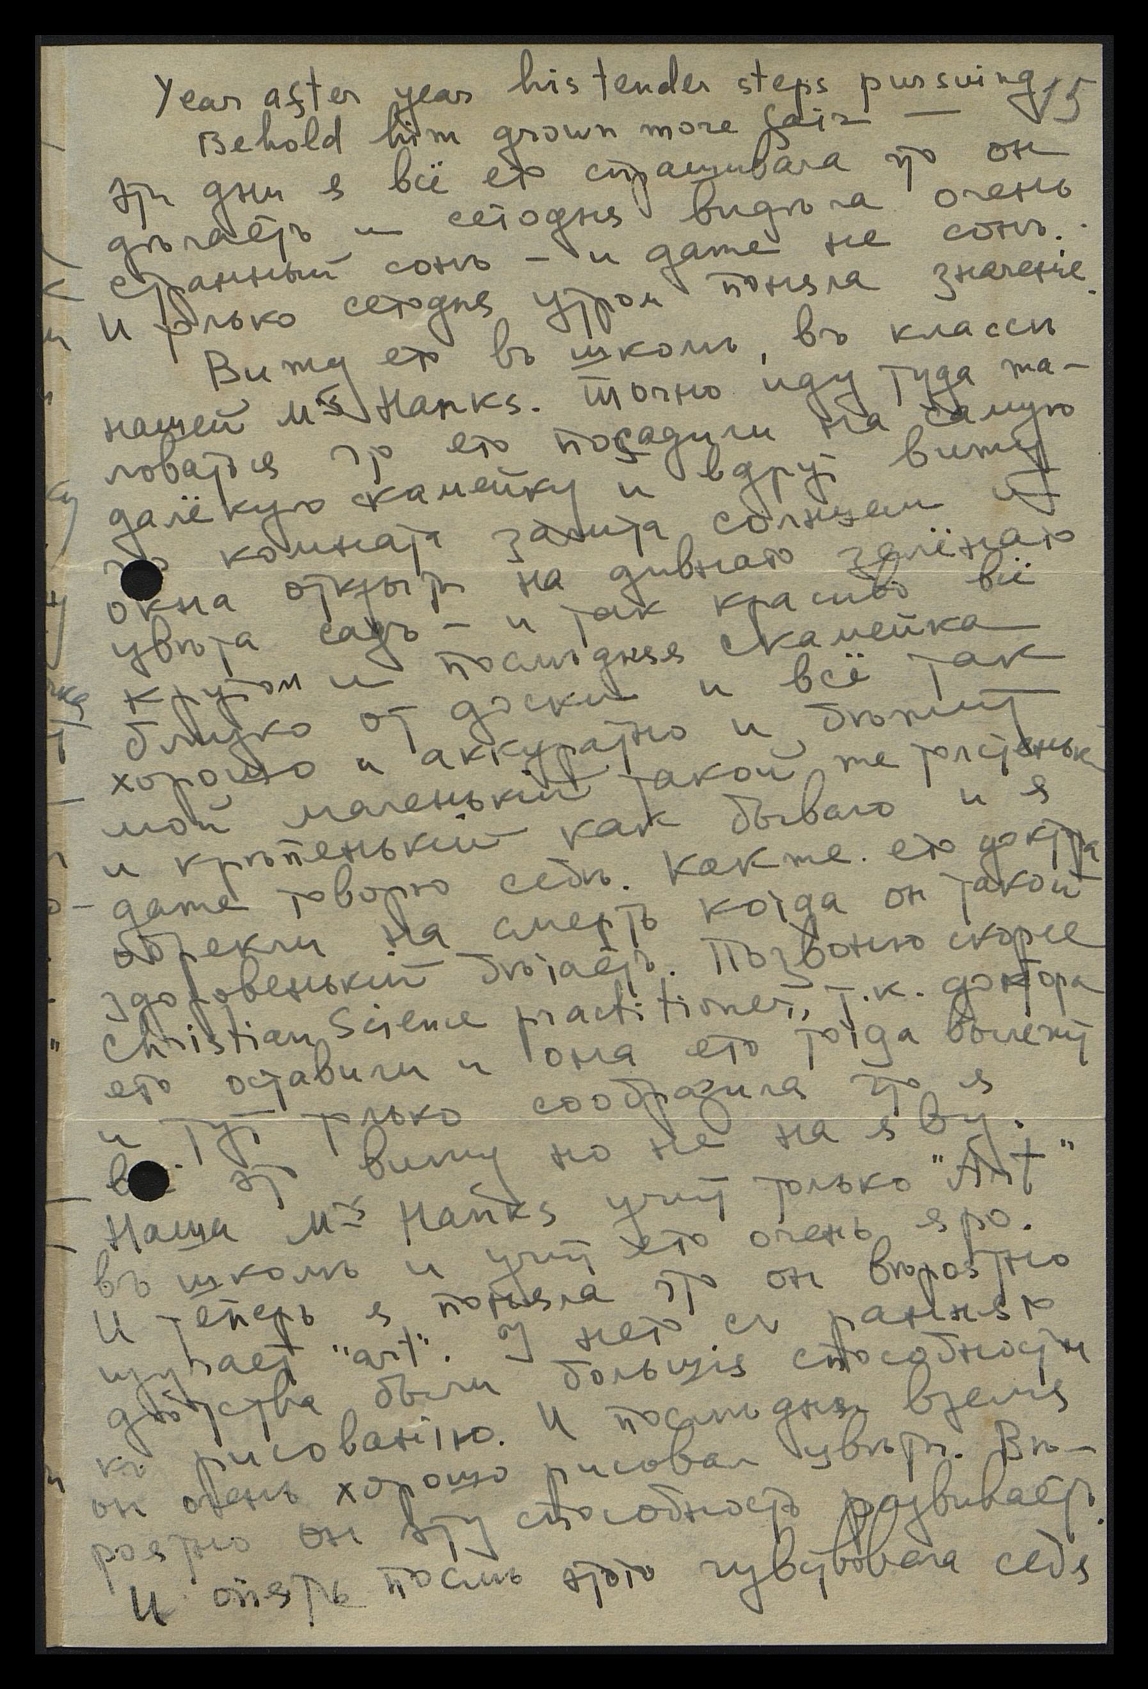 Year after year his tender steps pursuing 15
Behold him grown more fair —
эти дни я всё его спрашивала что он
дѣлаетъ и сегодня видѣла очень
странный сонъ – и даже не сонъ.
И только сегодня утром поняла значеніе.
Вижу его въ школѣ, въ классѣ
нашей Mrs Hanks. Точно иду туда жа–
ловаться что его посадили на самую
далёкую скамейку и вдруг вижу
что комната залита солнцем и
окна открыты на дивнаго зелёнаго
цвѣта садъ – и так красиво всё
кругом и послѣдняя скамейка
близко от доски и всё так
хорошо и аккуратно и бѣжит
мой маленькій такой же толстенькій
и крѣпенькій как бывало и я
даже говорю себѣ. Как же его доктора
обрекли на смерть когда он такой
здоровенькій бѣгаетъ. Позвоню скорѣе
Christian Science practitioner, т.к. доктора
его оставили и она его тогда вылечит
и тут только сообразила что я
всё это вижу но не на яву.
Наша Mrs Hanks учит только "Art"
въ школѣ и учит его очень яро.
И теперь я поняла что он вѣроятно
изучает "art". У него съ ранняго
дѣтства были большія способности
къ рисованію. И послѣднее время
он очень хорошо рисовал цвѣты. Вѣ–
роятно он эту способность развиваетъ.
И опять послѣ этого чувствовала себя